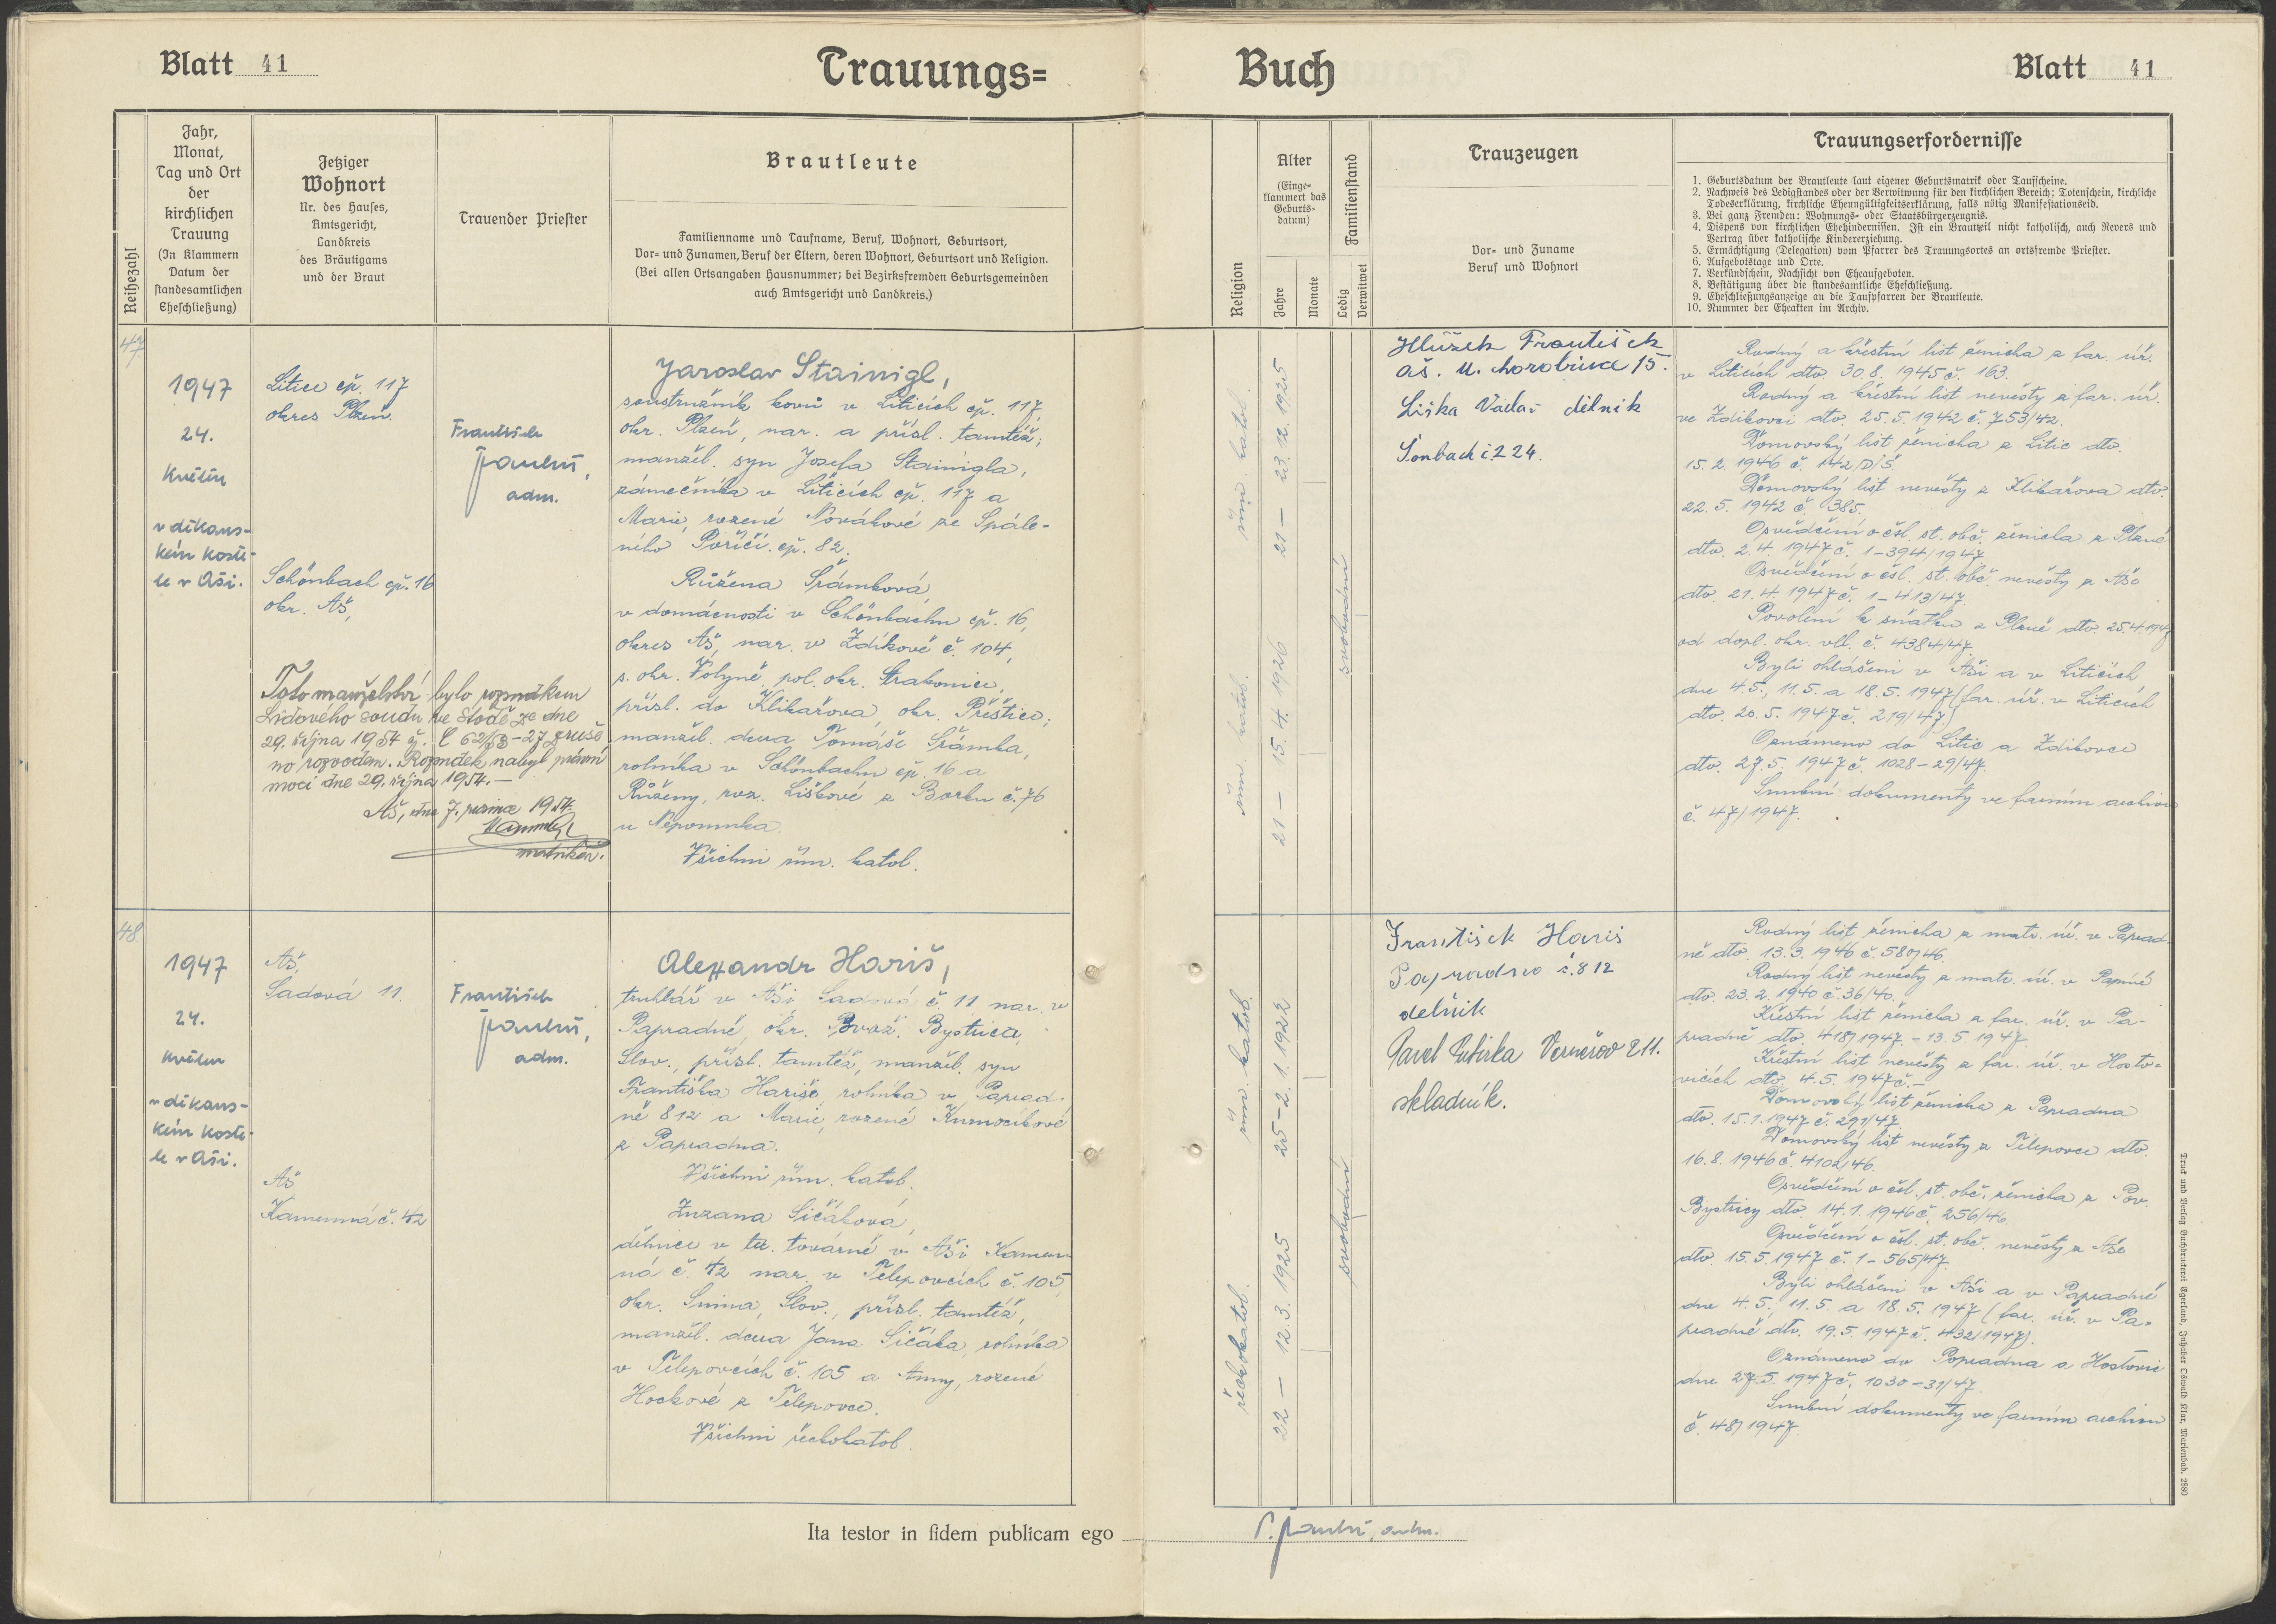 Blatt 41
Trauungs=
Buch
Blatt 41
Reihezahl
Jahr,
Monat,
Tag und Ort
der
kirchlichen
Trauung
(In Klammern
Datum der
standesamtlichen
Eheschließung)
Jetziger
Wohnort
Nr. des Hauses,
Amtsgericht,
Landkreis
des Bräutigams
und der Braut
Trauender Priester
Brautleute
Familienname und Taufname, Beruf, Wohnort, Geburtsort,
Vor- und Zunamen, Beruf der Eltern, deren Wohnort, Geburtsort und Religion.
(Bei allen Ortsangaben Hausnummer; bei Bezirksfremden Geburtsgemeinden
auch Amtsgericht und Landkreis.)
Religion
Alter
(Einge-
klammert das
Geburts-
datum)
Jahre
Monate
Familienstand
Ledig
Verwitwet
Trauzeugen
Vor- und Zuname
Beruf und Wohnort
Trauungserfordernisse
1. Geburtsdatum der Brautleute laut eigener Geburtsmatrik oder Taufscheine.
2. Nachweis des Ledigstandes oder der Verwitwung für den kirchlichen Bereich: Totenschein, kirchliche
Todeserklärung, kirchliche Eheungültigkeitserklärung, falls nötig Manifestationseid.
3. Bei ganz Fremden: Wohnungs- oder Staatsbürgerzeugnis.
4. Dispens von kirchlichen Ehehindernissen. Ist ein Brautteil nicht katholisch, auch Revers und
Vertrag über katholische Kindererziehung.
5. Ermächtigung (Delegation) vom Pfarrer des Trauungsortes an ortsfremde Priester.
6. Aufgebotstage und Orte.
7. Verkündschein, Nachsicht von Eheaufgeboten.
8. Bestätigung über die standesamtliche Eheschließung.
9. Eheschließungsanzeige an die Taufpfarren der Brautleute.
10. Nummer der Eheakten im Archiv.
47
1947
24.
květen
v děkans-
kém koste-
le v Aši.
Litice čp. 117
okres Plzeň.
Schönbach čp. 16
okr. Aš,
Toto manželství bylo rozsudkem
Lidového soudu ve Stodě ze dne
29. října 1954 č. C 62/53-27 zruše-
no rozvodem. Rozsudek nabyl právní
moci dne 29. října 1954.-
Aš, dne 7. prosince 1954.
matrikář.
František
Paulus,
adm.
Jaroslav Stainigl,
soustružník kovů v Liticích čp. 117,
okr. Plzeň, nar. a přísl. tamtéž;
manžel. syn Josefa Stainigla,
zámečníka v Liticích čp. 117 a
Marie, rozené Novákové ze Spále-
ného Poříčí čp. 82.
Růžena Šrámková,
v domácnosti v Schönbachu čp. 16,
okres Aš, nar. v Zdíkově č. 104,
s. okr. Volyně, pol. okr. Strakonice,
přísl. do Klikařova, okr. Přeštice;
manžel. dcera Tomáše Šrámka,
rolníka v Schönbachu čp. 16 a
Růženy, roz. Liškové z Borku č. 76
u Nepomuka.
Všichni řím. katol.
řím. katol.
21 — 23. 12. 1925
řím. katol.
21 — 15. 4. 1926
svobodní
František
Aš. 15.
Liška Václav dělník
Šonbach č. 224.
Rodný a křestní list ženicha z far. úř.
v Liticích dto. 30. 8. 1945 č. 163.
Rodný a křestní list nevěsty z far. úř.
ve Zdíkovci dto. 25. 5. 1942 č. 753/42.
Domovský list ženicha z Litic dto.
15. 2. 1946 č. 142/D/Š.
Domovský list nevěsty z Klikařova dto.
22. 5. 1942 č. 385.
Osvědčení o čsl. st. obč. ženicha z Plzně
dto. 2. 4. 1947 č. 1-394/1947.
Osvědčení o čsl. st. obč. nevěsty z Aše
dto. 21. 4. 1947 č. 1-413/47.
Povolení k sňatku z Plzně dto. 25.4.1947
od dopl. okr. vel. č. 4384/47.
Byli ohlášeni v Aši a v Liticích
dne 4. 5., 11. 5. a 18. 5. 1947 (far. úř. v Liticích
dto. 20. 5. 1947 č. 219/47.)
Oznámeno do Litic a Zdíkovce
dto. 27. 5. 1947 č. 1028-29/47.
Snubní dokumenty ve farním archivu
č. 47/1947.
48
1947
24.
květen
v děkans-
kém koste-
le v Aši.
Aš,
Sadová 11.
Aš
Kamenná č. 42
František
Paulus,
adm.
Alexandr Hariš,
truhlář v Aši, Sadová č. 11 nar. v
Papradné, okr. Považ. Bystrica,
Slov., přísl. tamtéž, manžel. syn
Františka Hariše, rolníka v Paprad-
né 812 a Marie, rozené
z Papradna.
Všichni řím. katol.
Zuzana Sičáková,
dělnice v tex. továrně v Aši Kamen-
ná č. 42 nar. v Telepovcích č. 105,
okr. Snina, Slov., přísl. tamtéž,
manžel. dcera Jana Sičáka, rolníka
v Telepovcích č. 105 a Anny, rozené
Hockové z Telepovce.
Všichni řeckokatol.
řím. katol.
25 - 2. 1. 1922
řeckokatol.
22 — 12. 3. 1925
svobodní
František Hariš
Papradno č. 812
delník
Pavel Vernéřov 211.
skladník.
Rodný list ženicha z matr. úř. v Paprad-
né dto. 13. 3. 1946 č. 580/46.
Rodný list nevěsty z matr. úř. v Papíně
dto. 23. 2. 1940 č. 36/40.
Křestní list ženicha z far. úř. v Pa-
pradné dto. 418/1947. - 13. 5. 1947.
Křestní list nevěsty z far. úř. v Hosto-
vicích dto. 4. 5. 1947 č. -
Domovský list ženicha z Papradna
dto. 15. 1. 1947 č. 291/47.
Domovský list nevěsty z Telepovce dto.
16. 8. 1946 č. 4102/46.
Osvědčení o čsl. st. obč. ženicha z Pov.
Bystrice dto. 14. 1. 1946 č. 256/46.
Osvědčení o čsl. st. obč. nevěsty z Aše
dto. 15. 5. 1947 č. 1-565/47.
Byli ohlášeni v Aši a v Papradné
dne 4. 5., 11. 5. a 18. 5. 1947 (far. úř. v Pa-
pradné dto. 19. 5. 1947 č. 432/1947).
Oznámeno do Papradna a Hostovic
dne 27. 5. 1947 č. 1030-31/47.
Snubní dokumenty ve farním archivu
č. 48/1947.
Ita testor in fidem publicam ego
F. Paulus, adm.
Druck und Verlag Buchdruckerei Egerland, Inhaber Oswald Klar, Marienbad. 2880